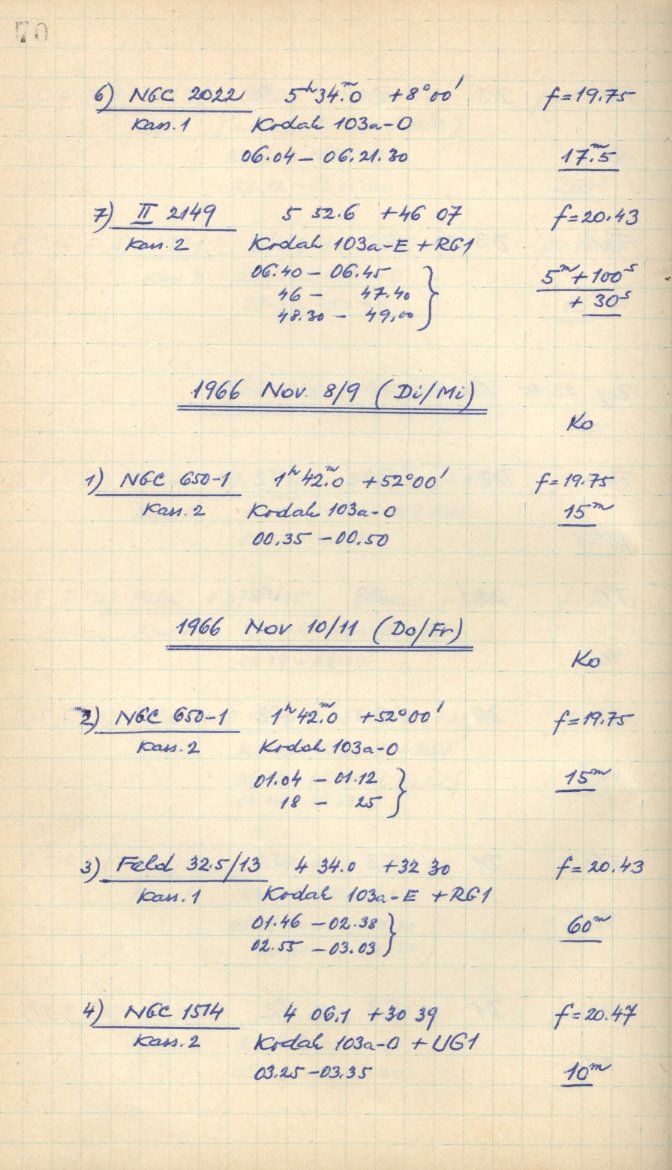 70
6) NGC 2022 5ʰ34ᵐ.0 +8°00' f=19.75
Kass.1 Kodak 103a-O
06.04 – 06.21.30 17ᵐ.5
7) II 2149 5 52.6 +46 07 f=20.43
Kass.2 Kodak 103a-E + RG1
06.40 – 06.45 5ᵐ+100ˢ
46 – 47.40 + 30ˢ
48.30 – 49,00
1966 Nov. 8/9 (Di/Mi)
Ko
1) NGC 650-1 1ʰ42ᵐ.0 +52°00' f=19.75
Kass.2 Kodak 103a-O 15ᵐ
00.35 – 00.50
1966 Nov 10/11 (Do/Fr)
Ko
2) NGC 650-1 1ʰ42ᵐ.0 +52°00' f=19.75
Kass.2 Kodak 103a-O
01.04 – 01.12 15ᵐ
18 – 25
3) Feld 32.5/13 4 34.0 +32 30 f=20.43
Kass.1 Kodak 103a-E + RG1
01.46 – 02.38 60ᵐ
02.55 – 03.03
4) NGC 1514 4 06.1 +30 39 f=20.47
Kass.2 Kodak 103a-O + UG1
03.25 – 03.35 10ᵐ